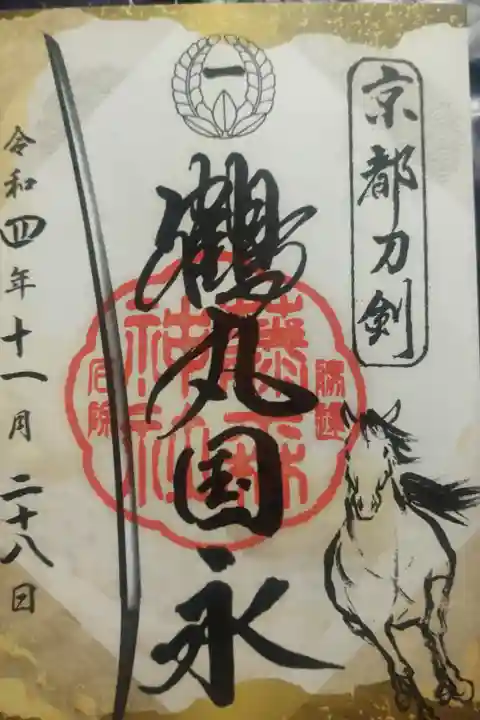 京都刀剣
一
鶴丸国永
藤森
神社
令和四年十一月二十八日